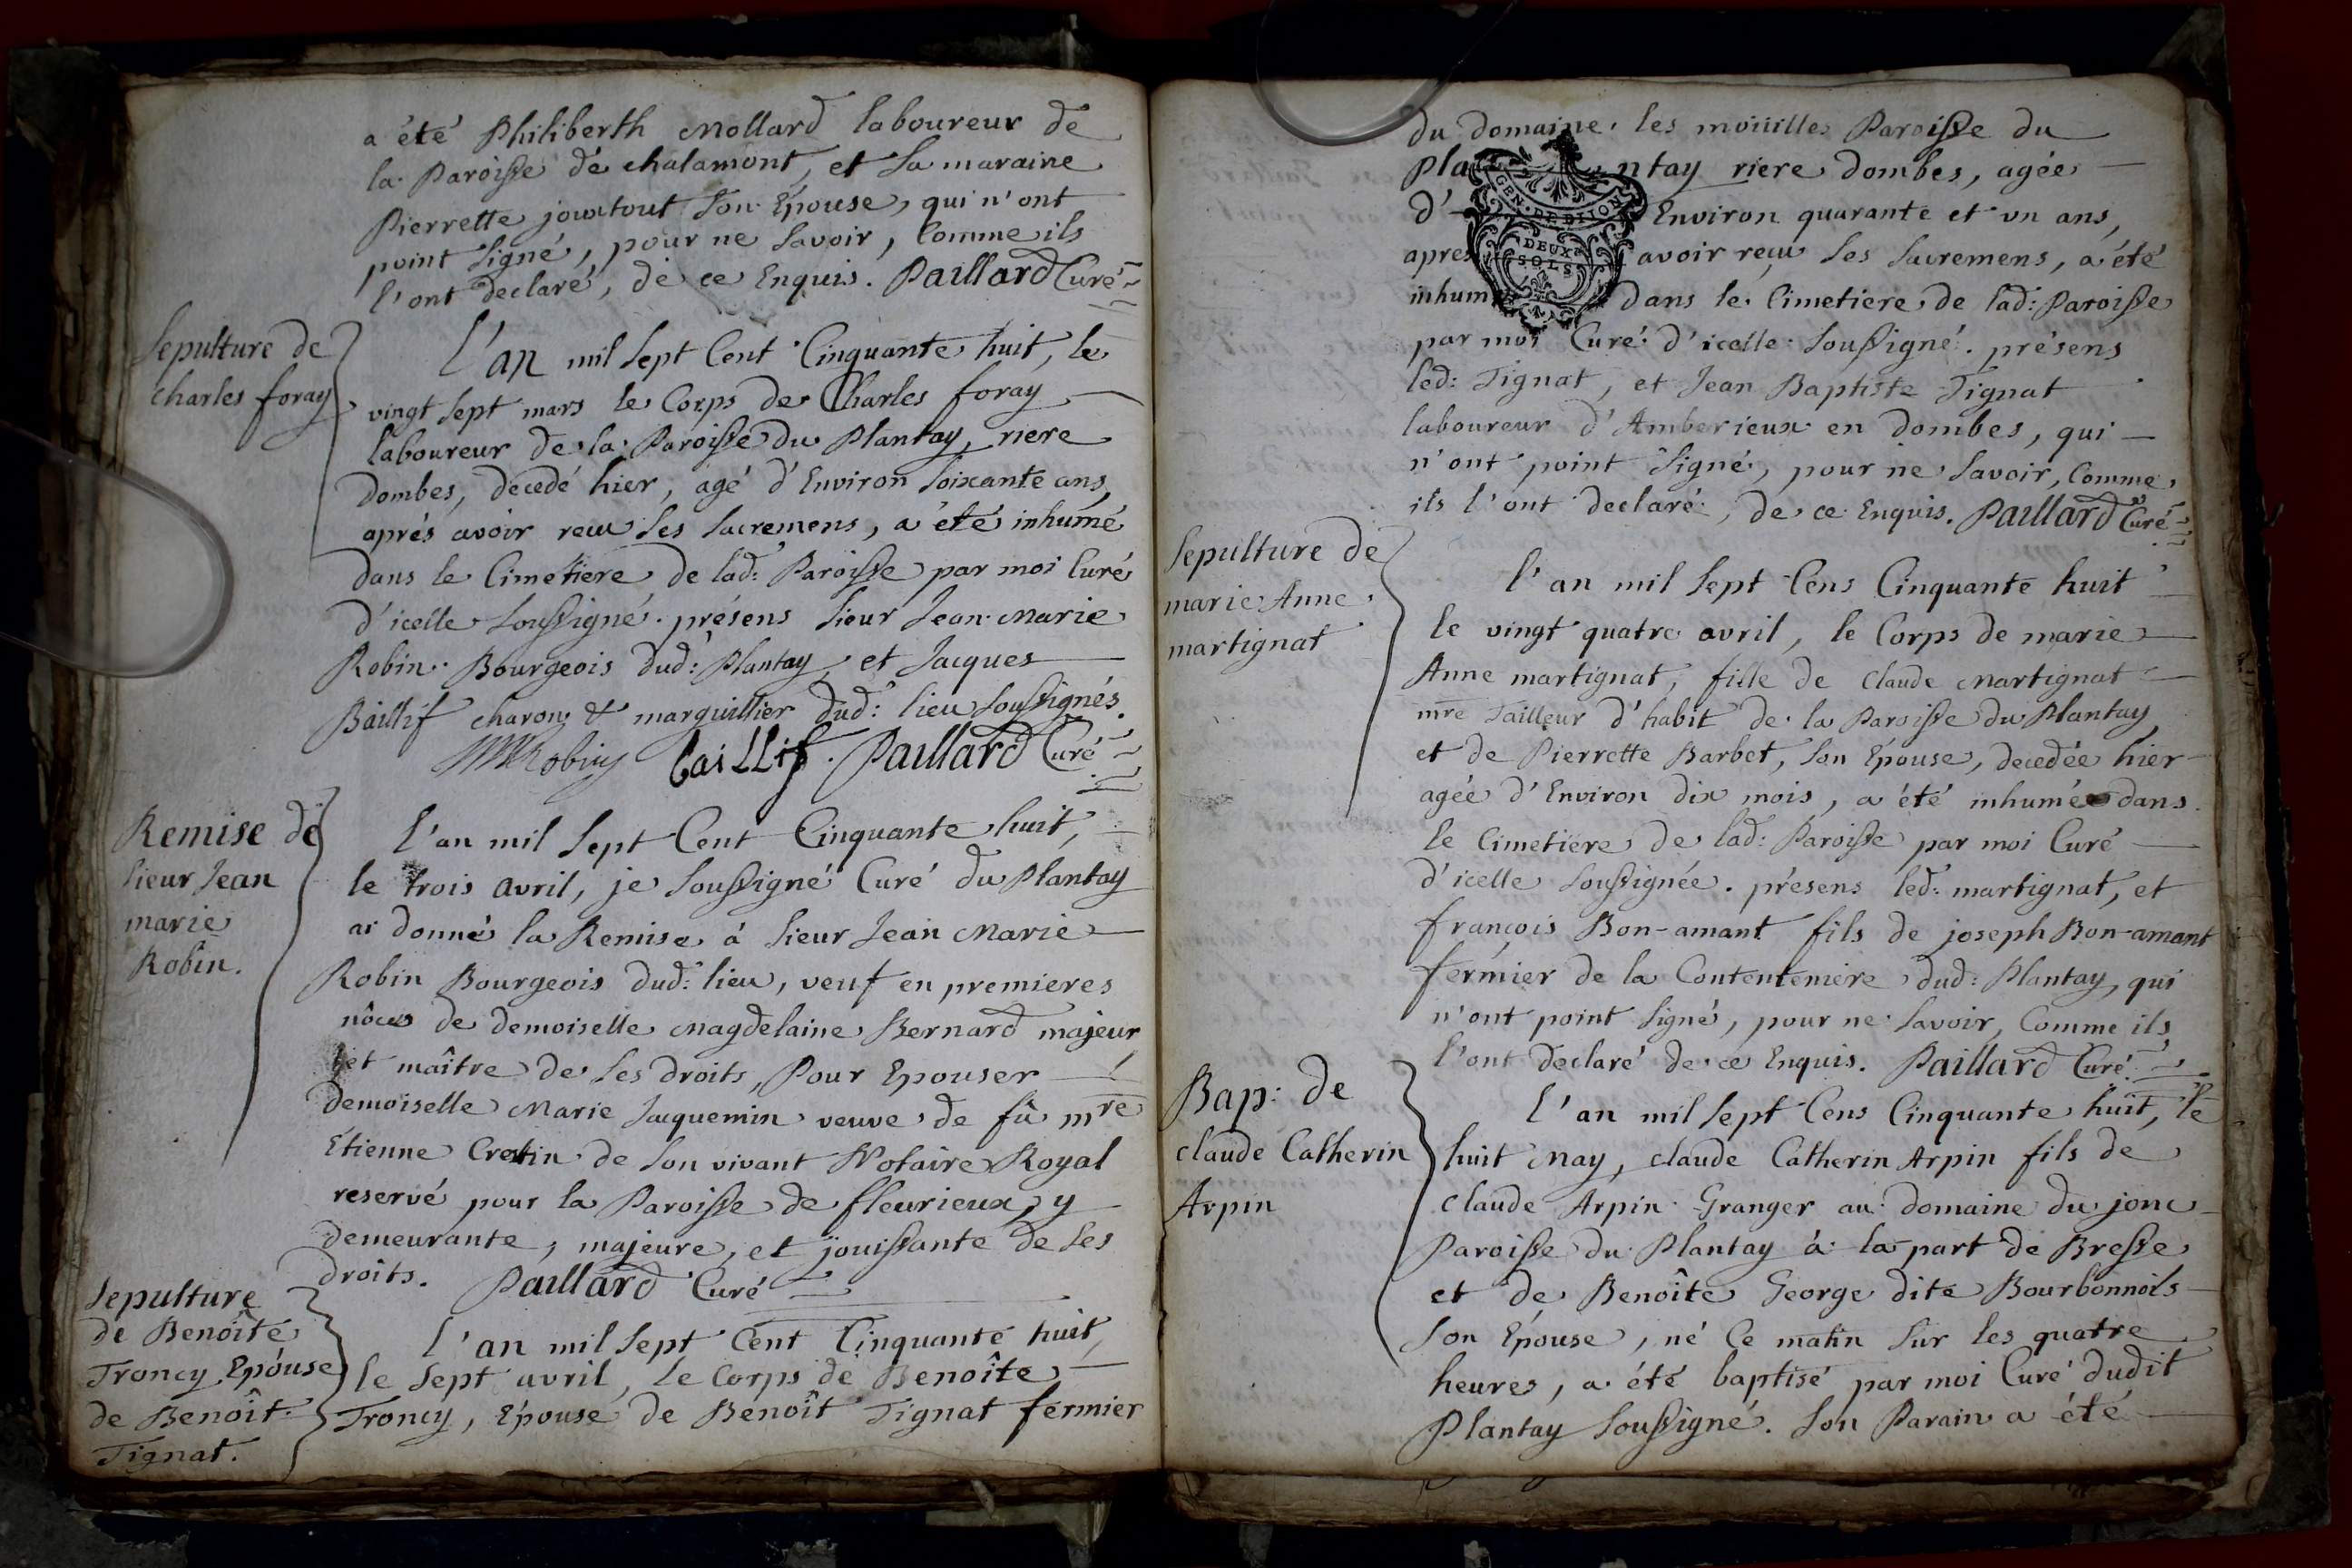 a été Philiberth Mollard laboureur de
la Paroisse de chalamont, et sa maraine
Pierrette jouxtout son Epouse, qui n'ont
point signé, pour ne savoir, Comme ils
l'ont declaré, de ce Enquis. Paillard Curé
Sepulture de
Charles foray
L'an mil sept Cent Cinquante huit, le
vingt sept mars le Corps de Charles foray
laboureur de la Paroisse du Plantay, riere
Dombes, decedé hier, agé d'Environ soixante ans,
aprés avoir reçu ses sacremens, a été inhumé
dans le Cimetiere de lad: Paroisse par moi Curé
d'icelle soussigné. présens sieur Jean Marie
Robin Bourgeois dud: Plantay, et Jacques
Baillif charon & marguillier dud: lieu soussignés.
Robin baillif. Paillard Curé
Remise de
sieur Jean
marie
Robin.
l'an mil sept Cent Cinquante huit,
le trois avril, je soussigné Curé du Plantay
ai donné la Remise à sieur Jean Marie
Robin Bourgeois dud: lieu, veuf en premieres
nôces de demoiselle Magdelaine Bernard majeur
et maître de ses droits, Pour Epouser
demoiselle Marie Jacquemin veuve de fû mre
Etienne Cretin de son vivant Notaire Royal
reservé pour la Paroisse de fleurieux, y
demeurante, majeure, et jouissante de ses
droits. Paillard Curé
Sepulture
de Benoîte
Troncy Epouse
de Benoît
Tignat.
l'an mil sept Cent Cinquante huit,
le sept avril, le Corps de Benoîte
Troncy, Epouse de Benoît Tignat fermier
du domaine les moüilles Paroisse du
Pla ntay riere Dombes, agée
d' Environ quarante et un ans,
apres avoir reçu ses sacremens, a été
inhum dans le Cimetiere de lad: Paroisse
GEN. DE DIJON
DEUX
SOLS
par moi Curé d'icelle soussigné. présens
led: Tignat, et Jean Baptiste Tignat
laboureur d'Amberieux en Dombes, qui
n'ont point signé, pour ne savoir, Comme
ils l'ont declaré, de ce Enquis. Paillard Curé
Sepulture de
marie Anne
martignat
l'an mil sept Cens Cinquante huit
le vingt quatre avril, le Corps de marie
Anne martignat, fille de Claude Martignat
mre Tailleur d'habit de la Paroisse du Plantay
et de Pierrette Barbet, son Epouse, decedée hier
agée d'Environ dix mois, a été inhumée dans
le Cimetiere de lad: Paroisse par moi Curé
d'icelle soussignée. présens led: martignat, et
françois Bon-amant fils de joseph Bon-amant
fermier de la Contentenière dud: Plantay, qui
n'ont point signé, pour ne savoir, Comme ils
l'ont declaré de ce Enquis. Paillard Curé
Bap: de
claude Catherin
Arpin
l'an mil sept Cens Cinquante huit, le
huit May, claude Catherin Arpin fils de
Claude Arpin Granger au domaine du jonc
Paroisse du Plantay à la part de Bresse
et de Benoîte George dite Bourbonnois
son Epouse, né Ce matin sur les quatre
heures, a été baptisé par moi Curé dudit
Plantay soussigné. son Parain a été